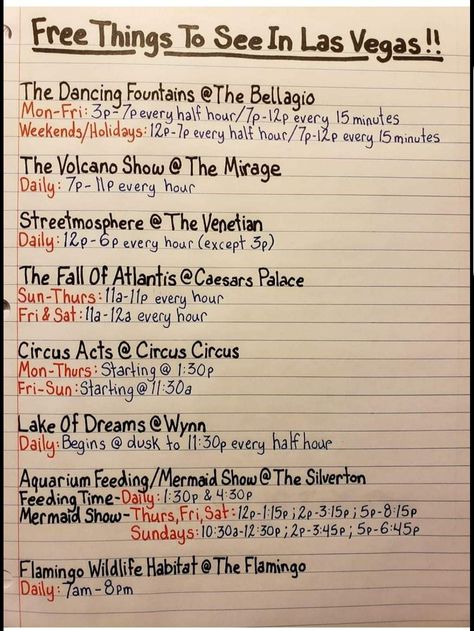 Free Things To See In Las Vegas!!
The Dancing Fountains @ The Bellagio
Mon-Fri: 3p-7p every half hour/7p-12p every 15 minutes
Weekends/Holidays: 12p-7p every half hour/7p-12p every 15 minutes
The Volcano Show @ The Mirage
Daily: 7p-11p every hour
Streetmosphere @ The Venetian
Daily: 12p-6p every hour (except 3p)
The Fall Of Atlantis @ Caesars Palace
Sun-Thurs: 11a-11p every hour
Fri & Sat: 11a-12a every hour
Circus Acts @ Circus Circus
Mon-Thurs: Starting @ 1:30p
Fri-Sun: Starting @ 11:30a
Lake Of Dreams @ Wynn
Daily: Begins @ dusk to 11:30p every half hour
Aquarium Feeding/Mermaid Show @ The Silverton
Feeding Time-Daily: 1:30p & 4:30p
Mermaid Show-Thurs, Fri, Sat: 12p-1:15p; 2p-3:15p; 5p-8:15p
Sundays: 10:30a-12:30p; 2p-3:45p; 5p-6:45p
Flamingo Wildlife Habitat @ The Flamingo
Daily: 7am-8pm